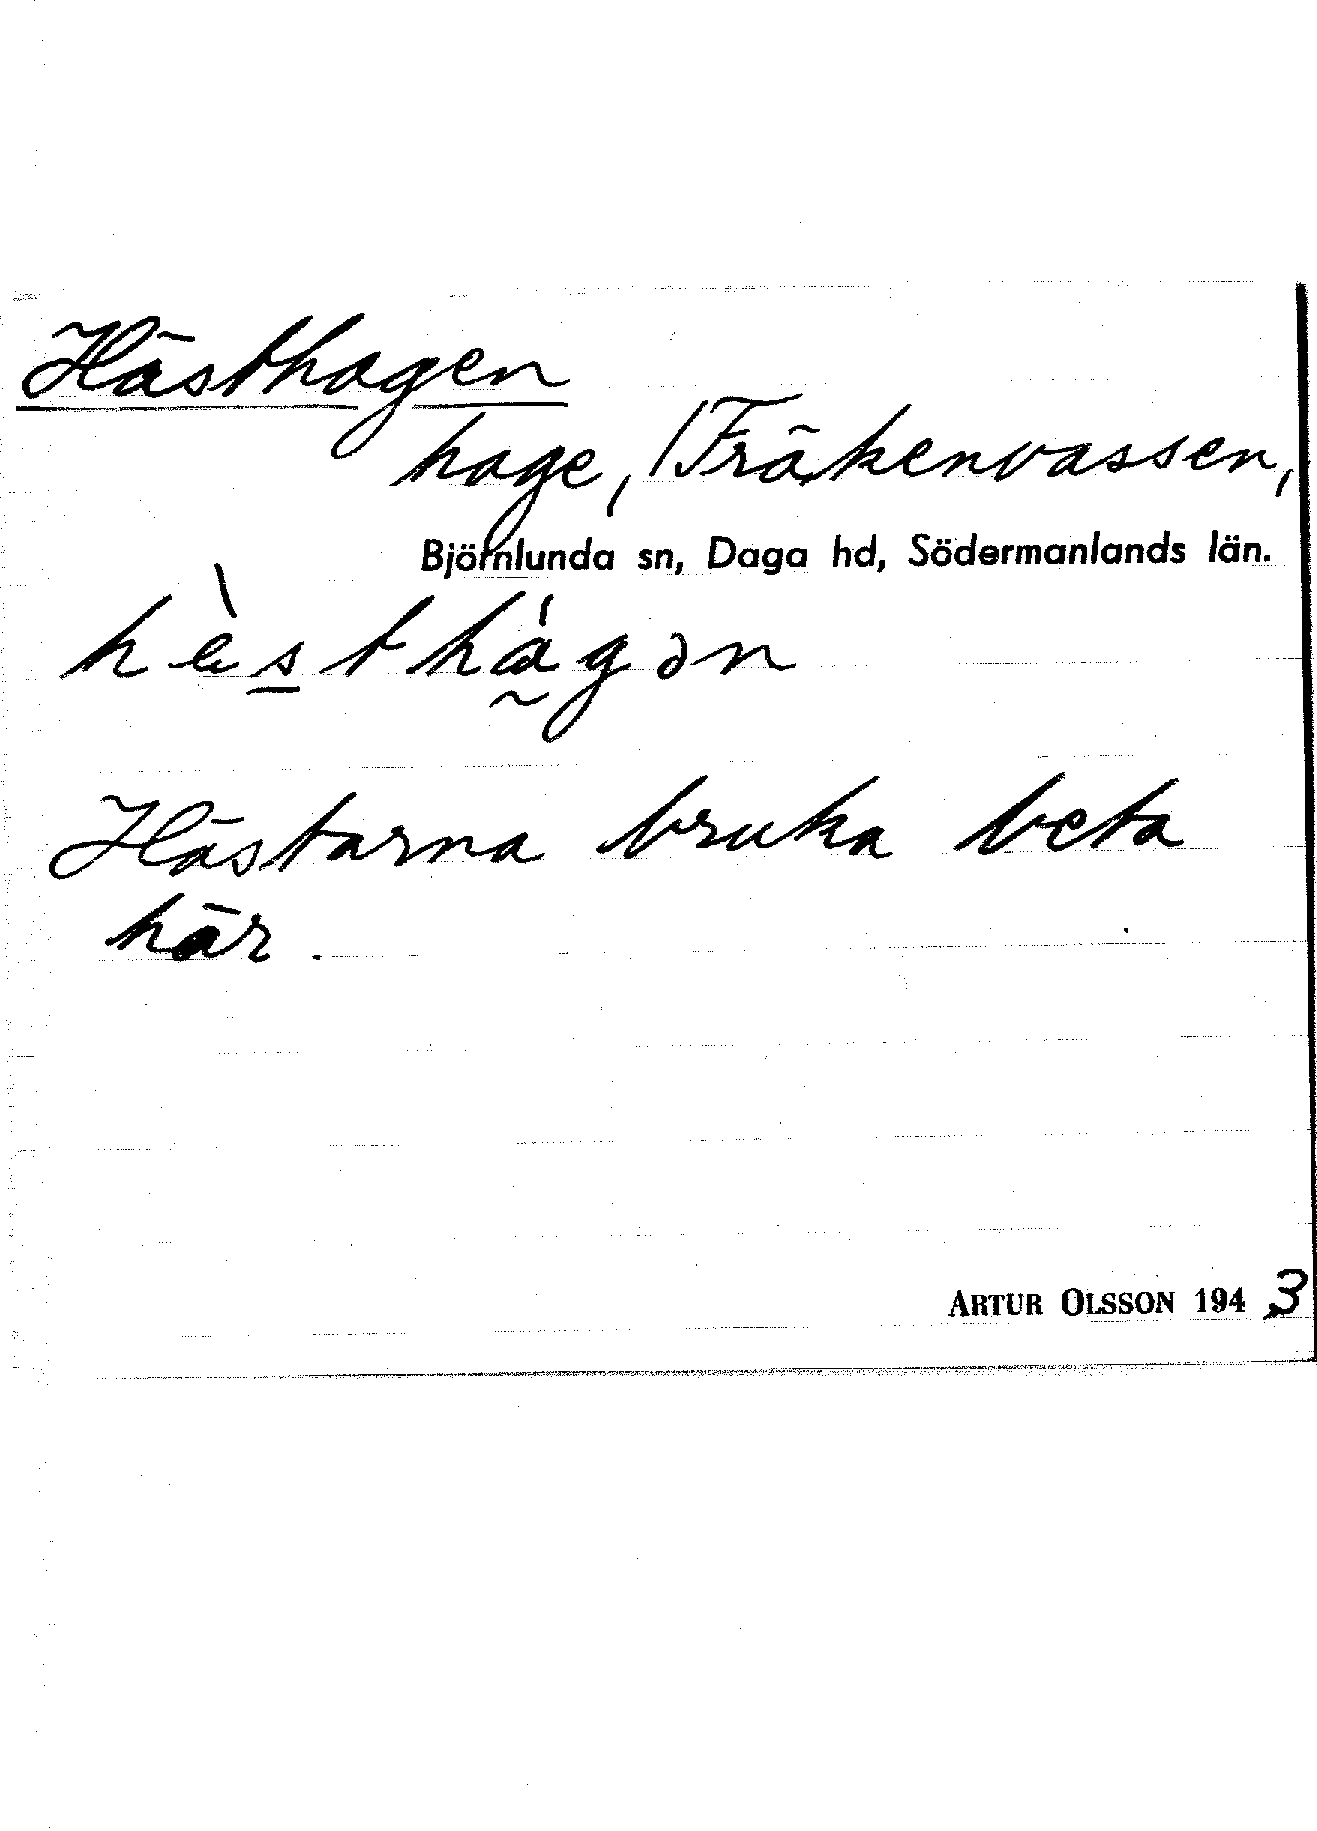 Hästhagen
hage, /Fräkenvassen,
Björnlunda sn, Daga hd, Södermanlands län.
hè̀sthágən
Hästarna bruka beta
här.
ARTUR OLSSON 1943